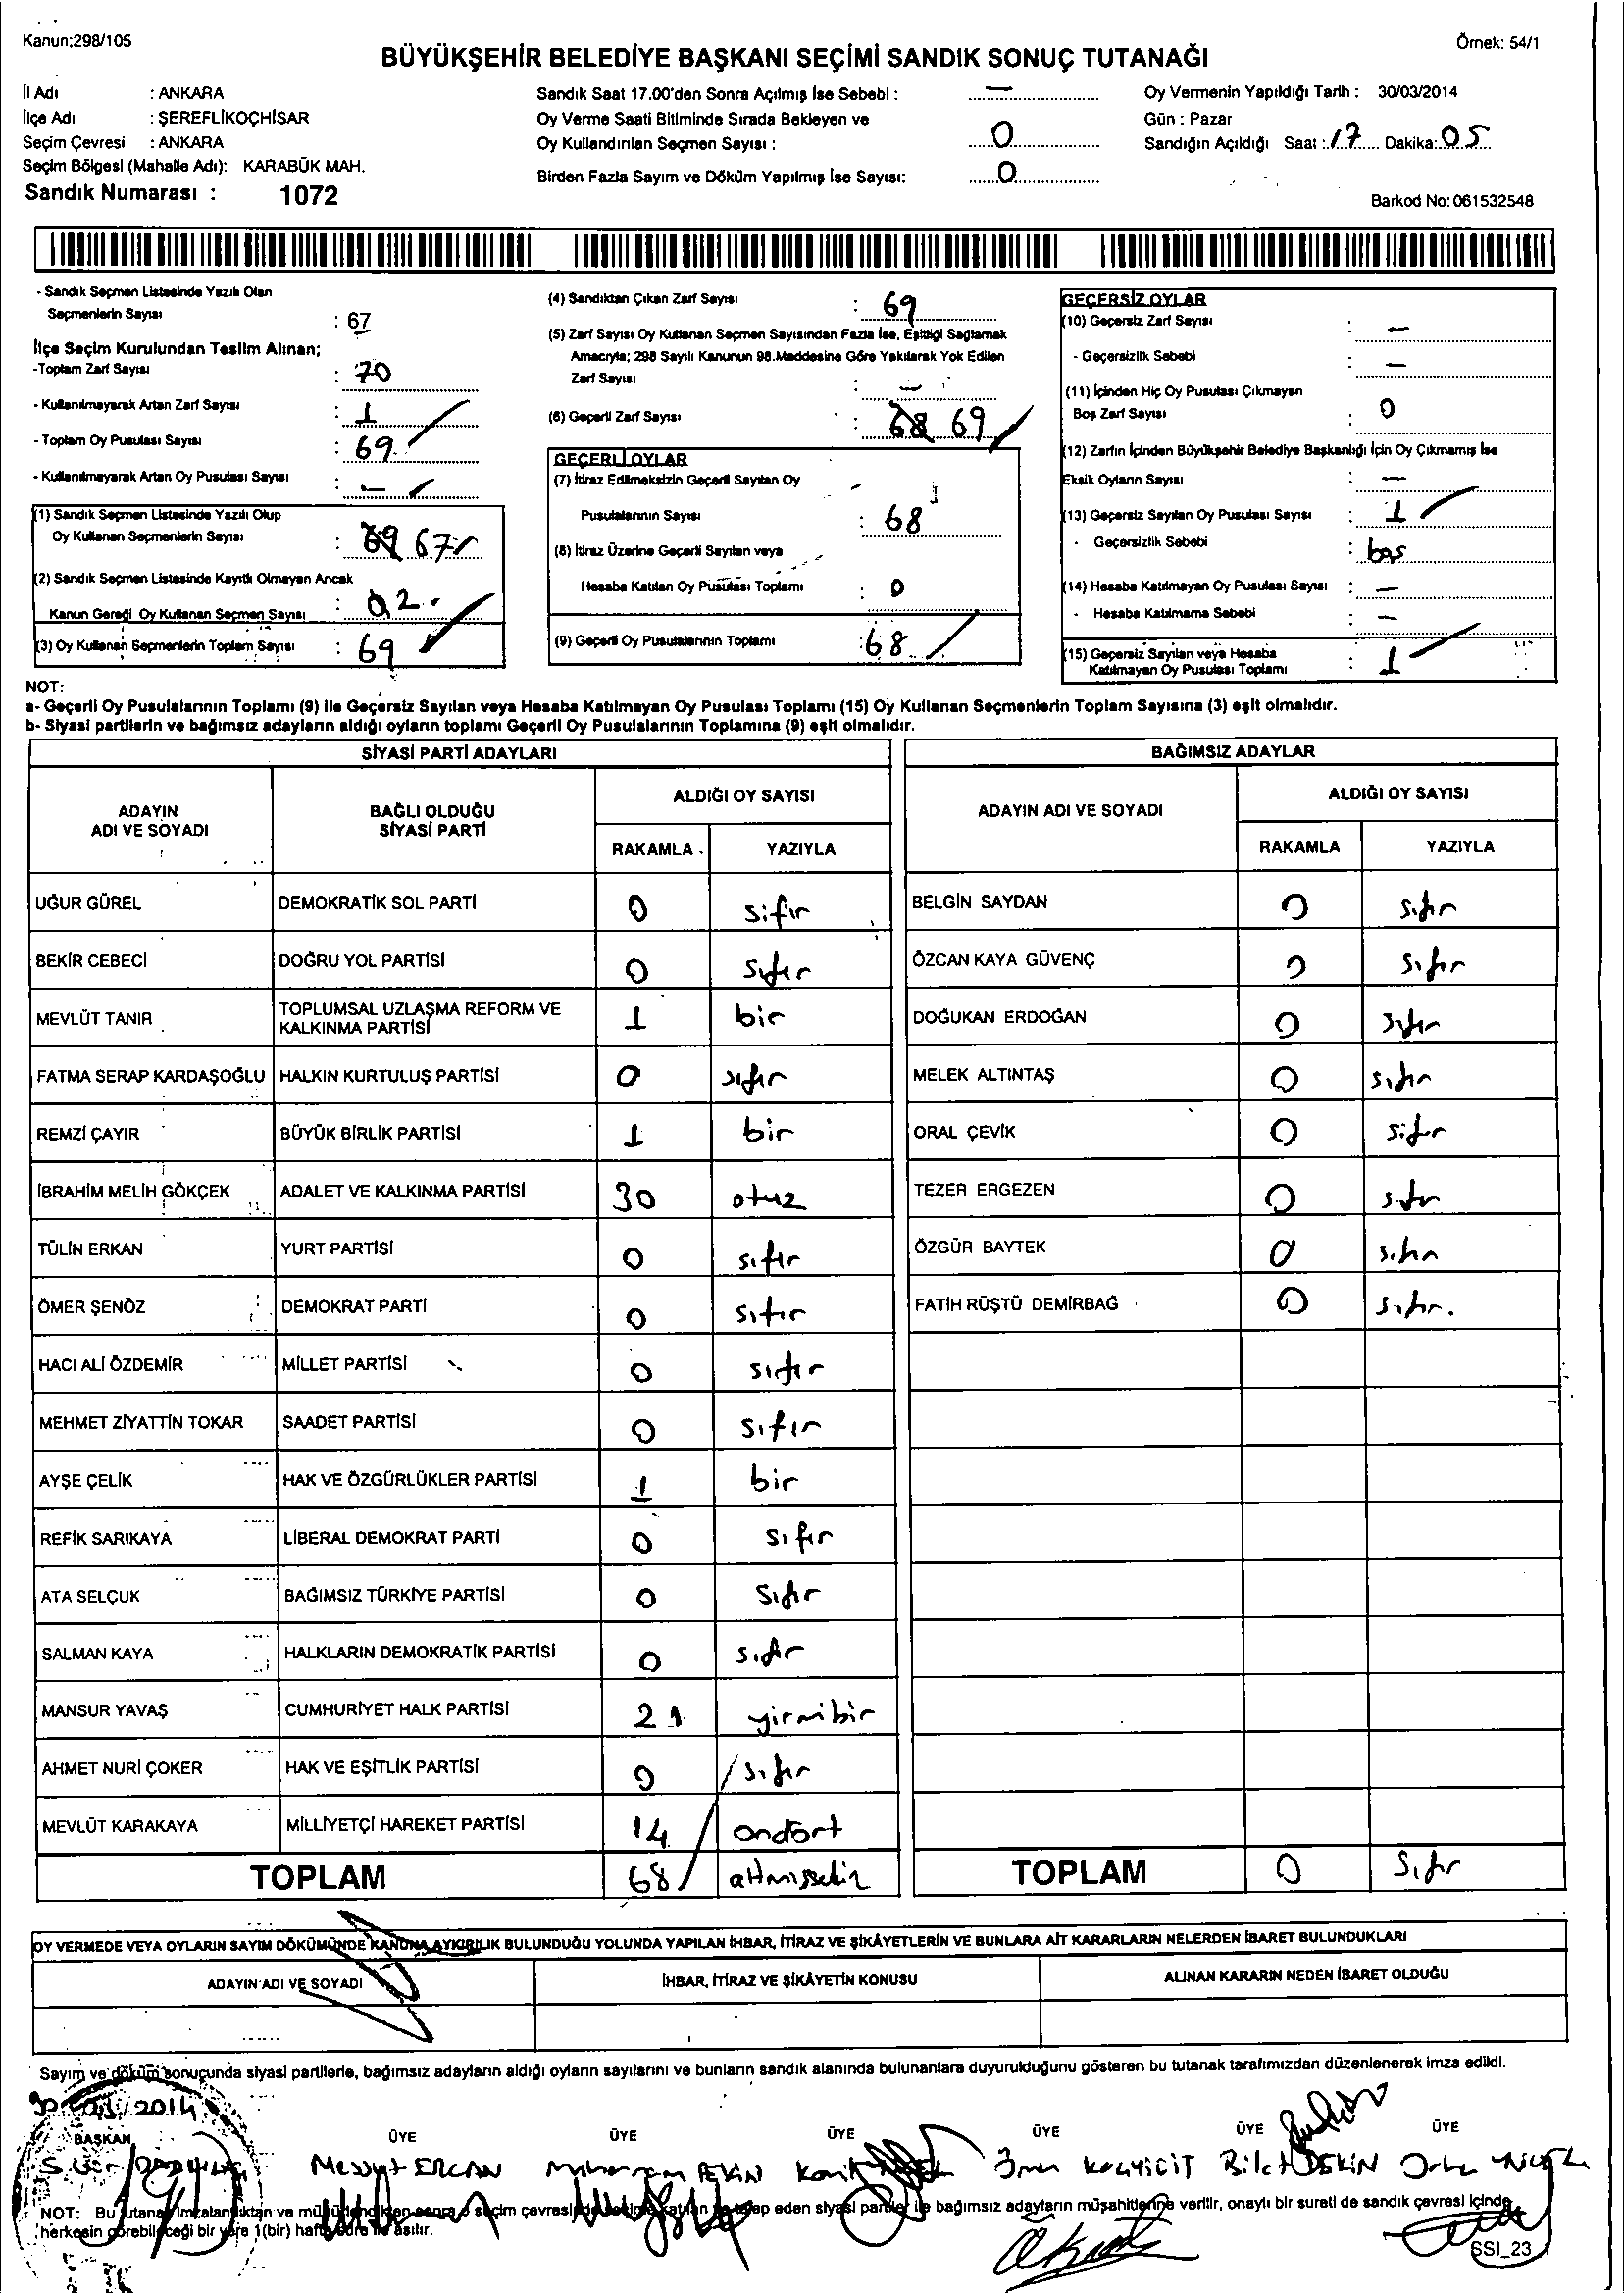 Kanun;298/105
Örnek: 54/1
BÜYÜKŞEHİR BELEDİYE BAŞKANI SEÇİMİ SANDIK SONUÇ TUTANAĞI
İl Adı : ANKARA
İlçe Adı : ŞEREFLİKOÇHİSAR
Seçim Çevresi : ANKARA
Seçim Bölgesi (Mahalle Adı): KARABÜK MAH.
Sandık Numarası : 1072
Sandık Saat 17.00'den Sonra Açılmış İse Sebebi : —
Oy Verme Saati Bitiminde Sırada Bekleyen ve
Oy Kullandırılan Seçmen Sayısı : 0
Birden Fazla Sayım ve Döküm Yapılmış İse Sayısı: 0
Oy Vermenin Yapıldığı Tarih : 30/03/2014
Gün : Pazar
Sandığın Açıldığı Saat : 17 Dakika: 05
Barkod No: 061532548
- Sandık Seçmen Listesinde Yazılı Olan
Seçmenlerin Sayısı : 67
İlçe Seçim Kurulundan Teslim Alınan;
-Toplam Zarf Sayısı : 70
- Kullanılmayarak Artan Zarf Sayısı : 1
- Toplam Oy Pusulası Sayısı : 69
- Kullanılmayarak Artan Oy Pusulası Sayısı : —
(1) Sandık Seçmen Listesinde Yazılı Olup
Oy Kullanan Seçmenlerin Sayısı : 67
(2) Sandık Seçmen Listesinde Kayıtlı Olmayan Ancak
Kanun Gereği Oy Kullanan Seçmen Sayısı : 02
(3) Oy Kullanan Seçmenlerin Toplam Sayısı : 69
(4) Sandıktan Çıkan Zarf Sayısı : 69
(5) Zarf Sayısı Oy Kullanan Seçmen Sayısından Fazla İse, Eşitliği Sağlamak
Amacıyla; 298 Sayılı Kanunun 98.Maddesine Göre Yakılarak Yok Edilen
Zarf Sayısı : —
(6) Geçerli Zarf Sayısı : 68 69
GEÇERLİ OYLAR
(7) İtiraz Edilmeksizin Geçerli Sayılan Oy
Pusulalarının Sayısı : 68
(8) İtiraz Üzerine Geçerli Sayılan veya
Hesaba Katılan Oy Pusulası Toplamı : 0
(9) Geçerli Oy Pusulalarının Toplamı : 68
GEÇERSİZ OYLAR
(10) Geçersiz Zarf Sayısı : —
- Geçersizlik Sebebi : —
(11) İçinden Hiç Oy Pusulası Çıkmayan
Boş Zarf Sayısı : 0
(12) Zarfın İçinden Büyükşehir Belediye Başkanlığı İçin Oy Çıkmamış İse
Eksik Oyların Sayısı : —
(13) Geçersiz Sayılan Oy Pusulası Sayısı : 1
- Geçersizlik Sebebi : boş
(14) Hesaba Katılmayan Oy Pusulası Sayısı : —
- Hesaba Katılmama Sebebi : —
(15) Geçersiz Sayılan veya Hesaba
Katılmayan Oy Pusulası Toplamı : 1
NOT:
a- Geçerli Oy Pusulalarının Toplamı (9) ile Geçersiz Sayılan veya Hesaba Katılmayan Oy Pusulası Toplamı (15) Oy Kullanan Seçmenlerin Toplam Sayısına (3) eşit olmalıdır.
b- Siyasi partilerin ve bağımsız adayların aldığı oyların toplamı Geçerli Oy Pusulalarının Toplamına (9) eşit olmalıdır.
SİYASİ PARTİ ADAYLARI
ADAYIN ADI VE SOYADI BAĞLI OLDUĞU SİYASİ PARTİ ALDIĞI OY SAYISI
RAKAMLA YAZIYLA
UĞUR GÜREL DEMOKRATİK SOL PARTİ 0 sıfır
BEKİR CEBECİ DOĞRU YOL PARTİSİ 0 sıfır
MEVLÜT TANIR TOPLUMSAL UZLAŞMA REFORM VE KALKINMA PARTİSİ 1 bir
FATMA SERAP KARDAŞOĞLU HALKIN KURTULUŞ PARTİSİ 0 sıfır
REMZİ ÇAYIR BÜYÜK BİRLİK PARTİSİ 1 bir
İBRAHİM MELİH GÖKÇEK ADALET VE KALKINMA PARTİSİ 30 otuz
TÜLİN ERKAN YURT PARTİSİ 0 sıfır
ÖMER ŞENÖZ DEMOKRAT PARTİ 0 sıfır
HACI ALİ ÖZDEMİR MİLLET PARTİSİ 0 sıfır
MEHMET ZİYATTİN TOKAR SAADET PARTİSİ 0 sıfır
AYŞE ÇELİK HAK VE ÖZGÜRLÜKLER PARTİSİ 1 bir
REFİK SARIKAYA LİBERAL DEMOKRAT PARTİ 0 sıfır
ATA SELÇUK BAĞIMSIZ TÜRKİYE PARTİSİ 0 sıfır
SALMAN KAYA HALKLARIN DEMOKRATİK PARTİSİ 0 sıfır
MANSUR YAVAŞ CUMHURİYET HALK PARTİSİ 21 yirmibir
AHMET NURİ ÇOKER HAK VE EŞİTLİK PARTİSİ 0 sıfır
MEVLÜT KARAKAYA MİLLİYETÇİ HAREKET PARTİSİ 14 ondört
TOPLAM 68 altmışsekiz
BAĞIMSIZ ADAYLAR
ADAYIN ADI VE SOYADI ALDIĞI OY SAYISI
RAKAMLA YAZIYLA
BELGİN SAYDAN 0 sıfır
ÖZCAN KAYA GÜVENÇ 0 sıfır
DOĞUKAN ERDOĞAN 0 sıfır
MELEK ALTINTAŞ 0 sıfır
ORAL ÇEVİK 0 sıfır
TEZER ERGEZEN 0 sıfır
ÖZGÜR BAYTEK 0 sıfır
FATİH RÜŞTÜ DEMİRBAĞ 0 sıfır.
TOPLAM 0 Sıfır
OY VERMEDE VEYA OYLARIN SAYIM DÖKÜMÜNDE KANUNA AYKIRILIK BULUNDUĞU YOLUNDA YAPILAN İHBAR, İTİRAZ VE ŞİKÂYETLERİN VE BUNLARA AİT KARARLARIN NELERDEN İBARET BULUNDUKLARI
ADAYIN ADI VE SOYADI İHBAR, İTİRAZ VE ŞİKÂYETİN KONUSU ALINAN KARARIN NEDEN İBARET OLDUĞU
Sayım ve döküm sonucunda siyasi partilerle, bağımsız adayların aldığı oyların sayılarını ve bunların sandık alanında bulunanlara duyurulduğunu gösteren bu tutanak tarafımızdan düzenlenerek imza edildi.
30/03/2014
BAŞKAN ÜYE ÜYE ÜYE ÜYE ÜYE ÜYE
ERCAN
NOT: Bu tutanak imzalandıktan ve mühürlendikten sonra o seçim çevresinde seçime katılan ve talep eden siyasi partiler ile bağımsız adayların müşahitlerine verilir, onaylı bir sureti de sandık çevresi içinde
herkesin görebileceği bir yere 1(bir) hafta süre ile asılır.
SSI_23